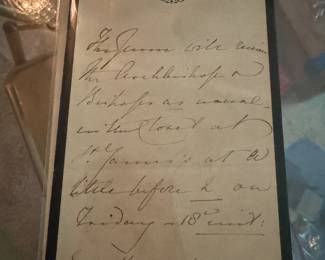 The Queen will receive
the Archbishops &
Bishops as usual
in the Closet at
St. James's at a
little before 2 on
Friday – 18th inst: